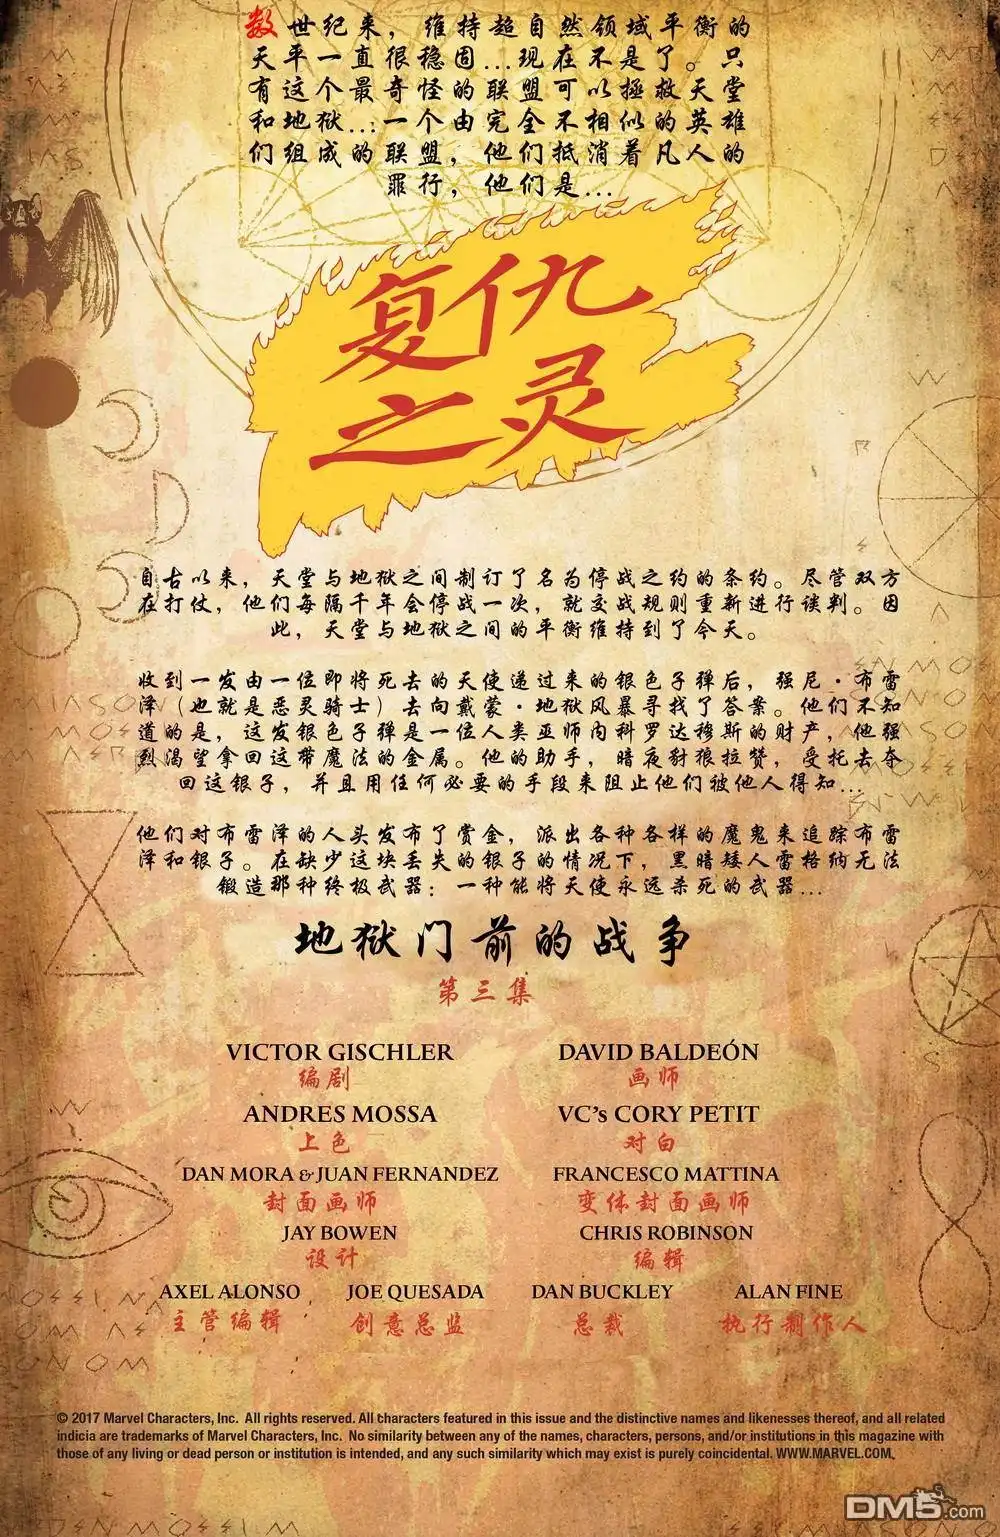 数世纪来，维持超自然领域平衡的
天平一直很稳固...现在不是了。只
有这个最奇怪的联盟可以拯救天堂
和地狱...:一个由完全不相似的英雄
们组成的联盟，他们抵消着凡人的
罪行，他们是...
复仇
之灵
自古以来，天堂与地狱之间制订了名为停战之约的条约。尽管双方
在打仗，他们每隔千年会停战一次，就交战规则重新进行谈判。因
此，天堂与地狱之间的平衡维持到了今天。
收到一发由一位即将死去的天使递过来的银色子弹后，强尼·布雷
泽（也就是恶灵骑士）去向戴蒙·地狱风暴寻找了答案。他们不知
道的是，这发银色子弹是一位人类巫师内科罗达穆斯的财产，他强
烈渴望拿回这带魔法的金属。他的助手，暗夜豺狼拉赞，受托去夺
回这银子，并且用任何必要的手段来阻止他们被他人得知...
他们对布雷泽的人头发布了赏金，派出各种各样的魔鬼来追踪布雷
泽和银子。在缺少这块丢失的银子的情况下，黑暗矮人雷格纳无法
锻造那种终极武器：一种能将天使永远杀死的武器...
地狱门前的战争
第三集
VICTOR GISCHLER
编剧
DAVID BALDEÓN
画师
ANDRES MOSSA
上色
VC's CORY PETIT
对白
DAN MORA & JUAN FERNANDEZ
封面画师
FRANCESCO MATTINA
变体封面画师
JAY BOWEN
设计
CHRIS ROBINSON
编辑
AXEL ALONSO
主管编辑
JOE QUESADA
创意总监
DAN BUCKLEY
总裁
ALAN FINE
执行制作人
© 2017 Marvel Characters, Inc. All rights reserved. All characters featured in this issue and the distinctive names and likenesses thereof, and all related
indicia are trademarks of Marvel Characters, Inc. No similarity between any of the names, characters, persons, and/or institutions in this magazine with
those of any living or dead person or institution is intended, and any such similarity which may exist is purely coincidental. WWW.MARVEL.COM.
DM5.com